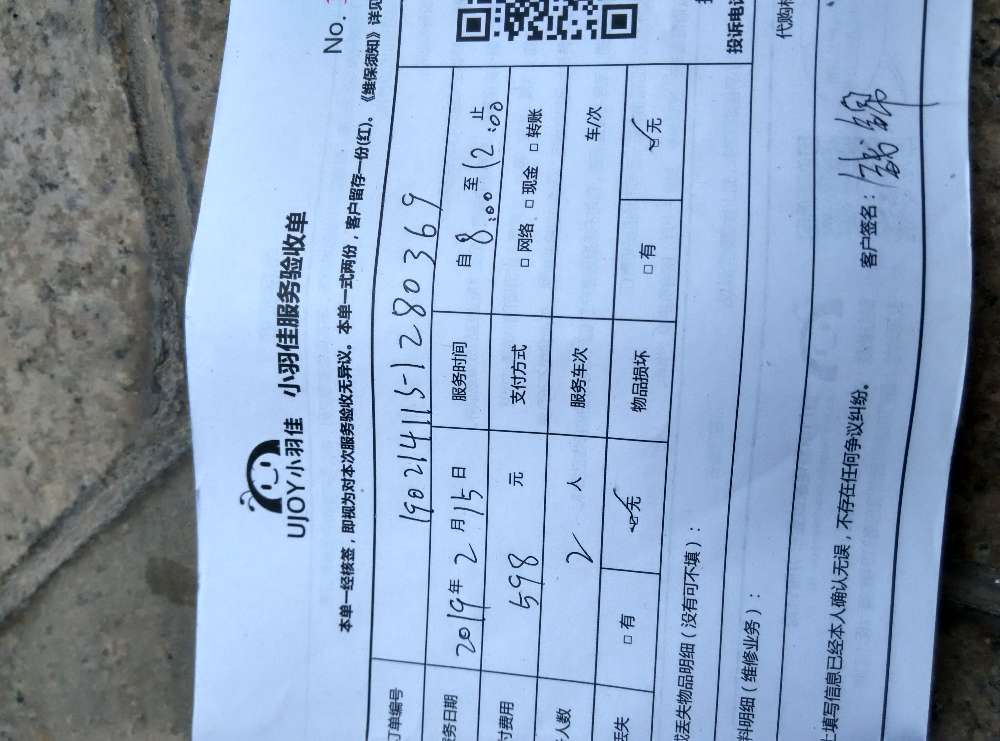 UJOY小羽佳 小羽佳服务验收单
No.
本单一经核签，即视为对本次服务验收无异议。本单一式两份，客户留存一份(红)。《维保须知》详见
订单编号 190214115-1280369
务日期 2019年2月15日 服务时间 自 8:00 至 12:00 止
付费用 598 元 支付方式 □网络 □现金 □转账
人数 2 人 服务车次 车/次
丢失 □有 ☑无 物品损坏 □有 ☑无
或丢失物品明细（没有可不填）：
料明细（维修业务）：
投诉电话
代购
上填写信息已经本人确认无误，不存在任何争议纠纷。 客户签名：